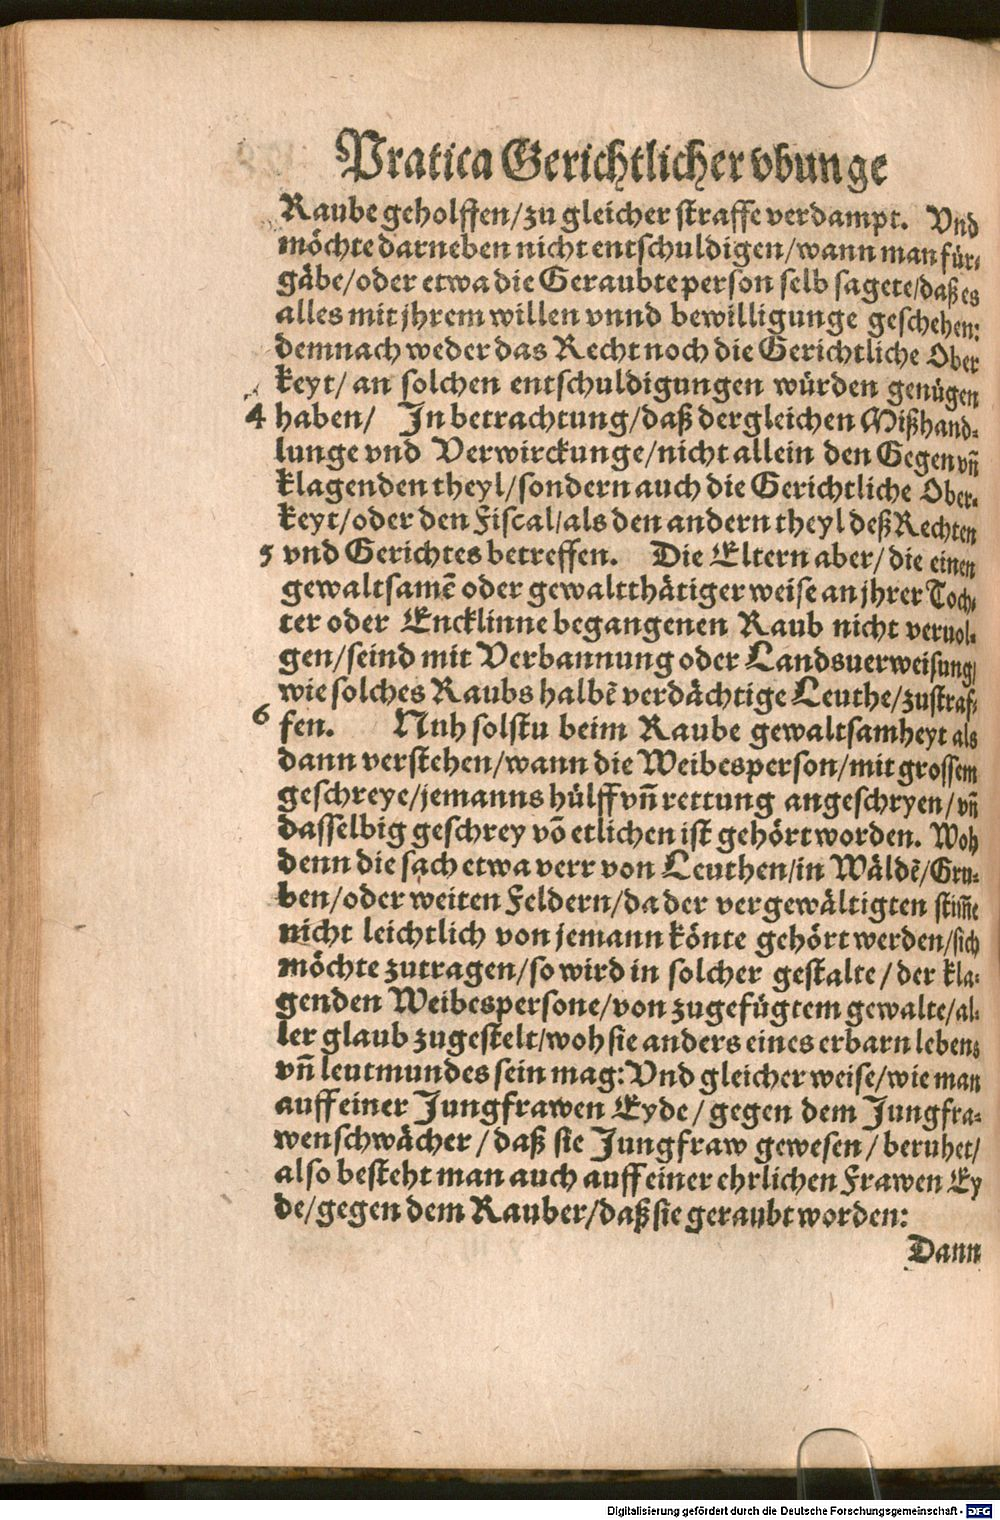 Pratica Gerichtlicher vbunge
Raube geholffen/zu gleicher straffe verdampt. Vnd
möchte darneben nicht entschuldigen/wann man für-
gäbe/oder etwa die Geraubte person selb sagete/daß es
alles mit jhrem willen vnnd bewilligunge geschehen:
demnach weder das Recht noch die Gerichtliche Ober
keyt/ an solchen entschuldigungen würden genügen
4 haben/ In betrachtung/daß dergleichen Mißhand-
lunge vnd Verwirckunge/nicht allein den Gegen vñ
klagenden theyl/sondern auch die Gerichtliche Ober-
keyt/oder den Fiscal/als den andern theyl deß Rechten
5 vnd Gerichtes betreffen. Die Eltern aber/die einen
gewaltsamẽ oder gewaltthätiger weise an jhrer Toch-
ter oder Encklinne begangenen Raub nicht veruol-
gen/seind mit Verbannung oder Landsuerweisung/
wie solches Raubs halbẽ verdächtige Leuthe/zustraf-
6 fen. Nuh solstu beim Raube gewaltsamheyt als
dann verstehen/wann die Weibesperson/mit grossem
geschreye/jemanns hülff vñ rettung angeschryen/vñ
dasselbig geschrey võ etlichen ist gehört worden. Woh
denn die sach etwa verr von Leuthen/in Wäldẽ/Gru-
ben/oder weiten Feldern/da der vergewältigten stim̃e
nicht leichtlich von jemann könte gehört werden/sich
möchte zutragen/so wird in solcher gestalte/der kla-
genden Weibespersone/von zugefügtem gewalte/al-
ler glaub zugestelt/woh sie anders eines erbarn lebens
vñ leutmundes sein mag: Vnd gleicher weise/wie man
auff einer Jungfrawen Eyde/gegen dem Jungfra-
wenschwächer/daß sie Jungfraw gewesen/beruhet/
also besteht man auch auff einer ehrlichen Frawen Ey
de/gegen dem Rauber/daß sie geraubt worden:
Dann
Digitalisierung gefördert durch die Deutsche Forschungsgemeinschaft - DFG